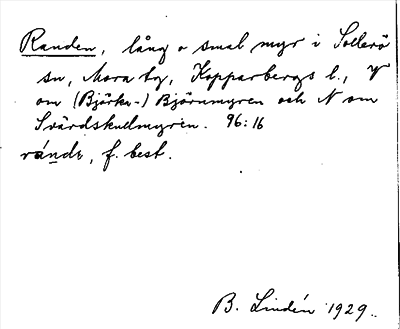 Randen, lång o smal myr i Sollerö
sn, Mora tg, Kopparbergs l., V
om (Björks-) Björnmyren och N om
Svärdskullmyren. 96:16
rándẹ, f. best.
B. Lindén 1929.